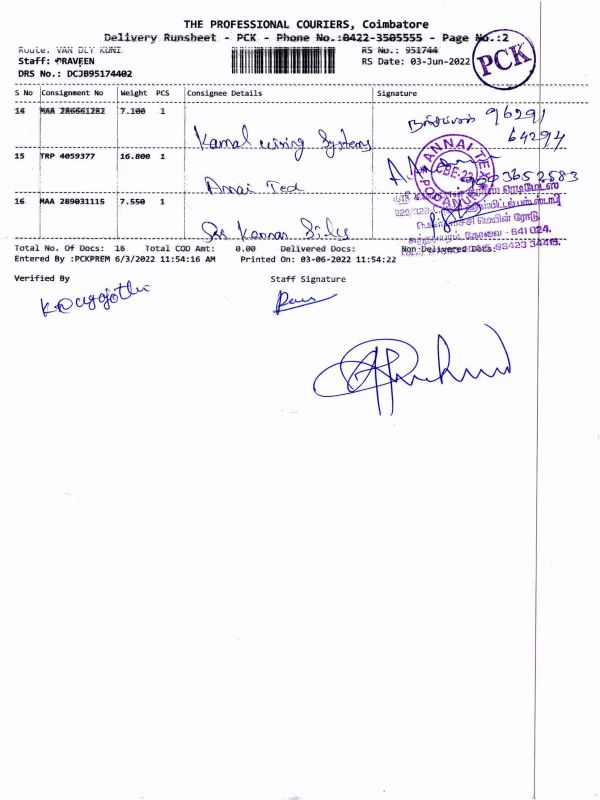 THE PROFESSIONAL COURIERS, Coimbatore
Delivery Runsheet - PCK - Phone No.:0422-3505555 - Page No.:2
Route: VAN DLY KUNI
RS No.: 951744
Staff: PRAVEEN
RS Date: 03-Jun-2022
PCK
DRS No.: DCJB95174402
S No Consignment No Weight PCS Consignee Details Signature
14 MAA 286661282 7.100 1
Kamal wiring Systems
96291
64294
15 TRP 4059377 16.800 1
Annai Tex
ANNAI TEX
CBE-23
PODANUR
16 MAA 289031115 7.550 1
Sri Kannan Silks
மெயின் ரோடு
கோவை - 641 024.
Total No. Of Docs: 16 Total COD Amt: 0.00 Delivered Docs: Non-Delivered Docs:
Entered By :PCKPREM 6/3/2022 11:54:16 AM Printed On: 03-06-2022 11:54:22
Verified By Staff Signature